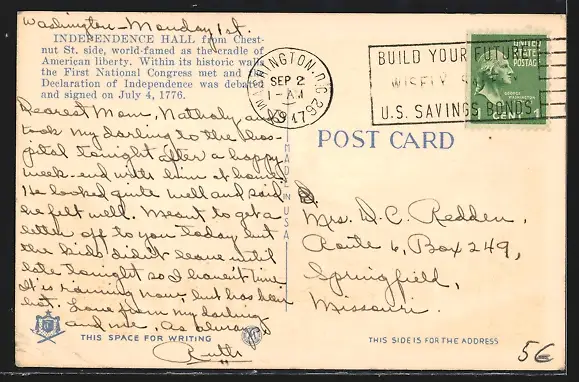 Washington - Monday 1st.
INDEPENDENCE HALL from Chest-
nut St. side, world-famed as the cradle of
American liberty. Within its historic walls
the First National Congress met and the
Declaration of Independence was debated
and signed on July 4, 1776.
Dearest Mom, and
took my darling to the hos-
pital tonight after a happy
week-end with him at home.
He looked quite well and said
he felt well. Meant to get a
letter off to you today but
the kids didn't leave until
late tonight so I haven't time.
It is raining now, but has been
hot. Love from my darling
and me, As always
Ruth
THIS SPACE FOR WRITING
MADE IN U.S.A.
WASHINGTON, D.C.
SEP 2
1-AM
1947
BUILD YOUR FUTURE
WISELY
U.S. SAVINGS BONDS
UNITED
STATES
POSTAGE
GEORGE WASHINGTON
1 CENT 1
POST CARD
Mrs. D. C. Redden,
Route 6, Box 249,
Springfield,
Missouri.
THIS SIDE IS FOR THE ADDRESS